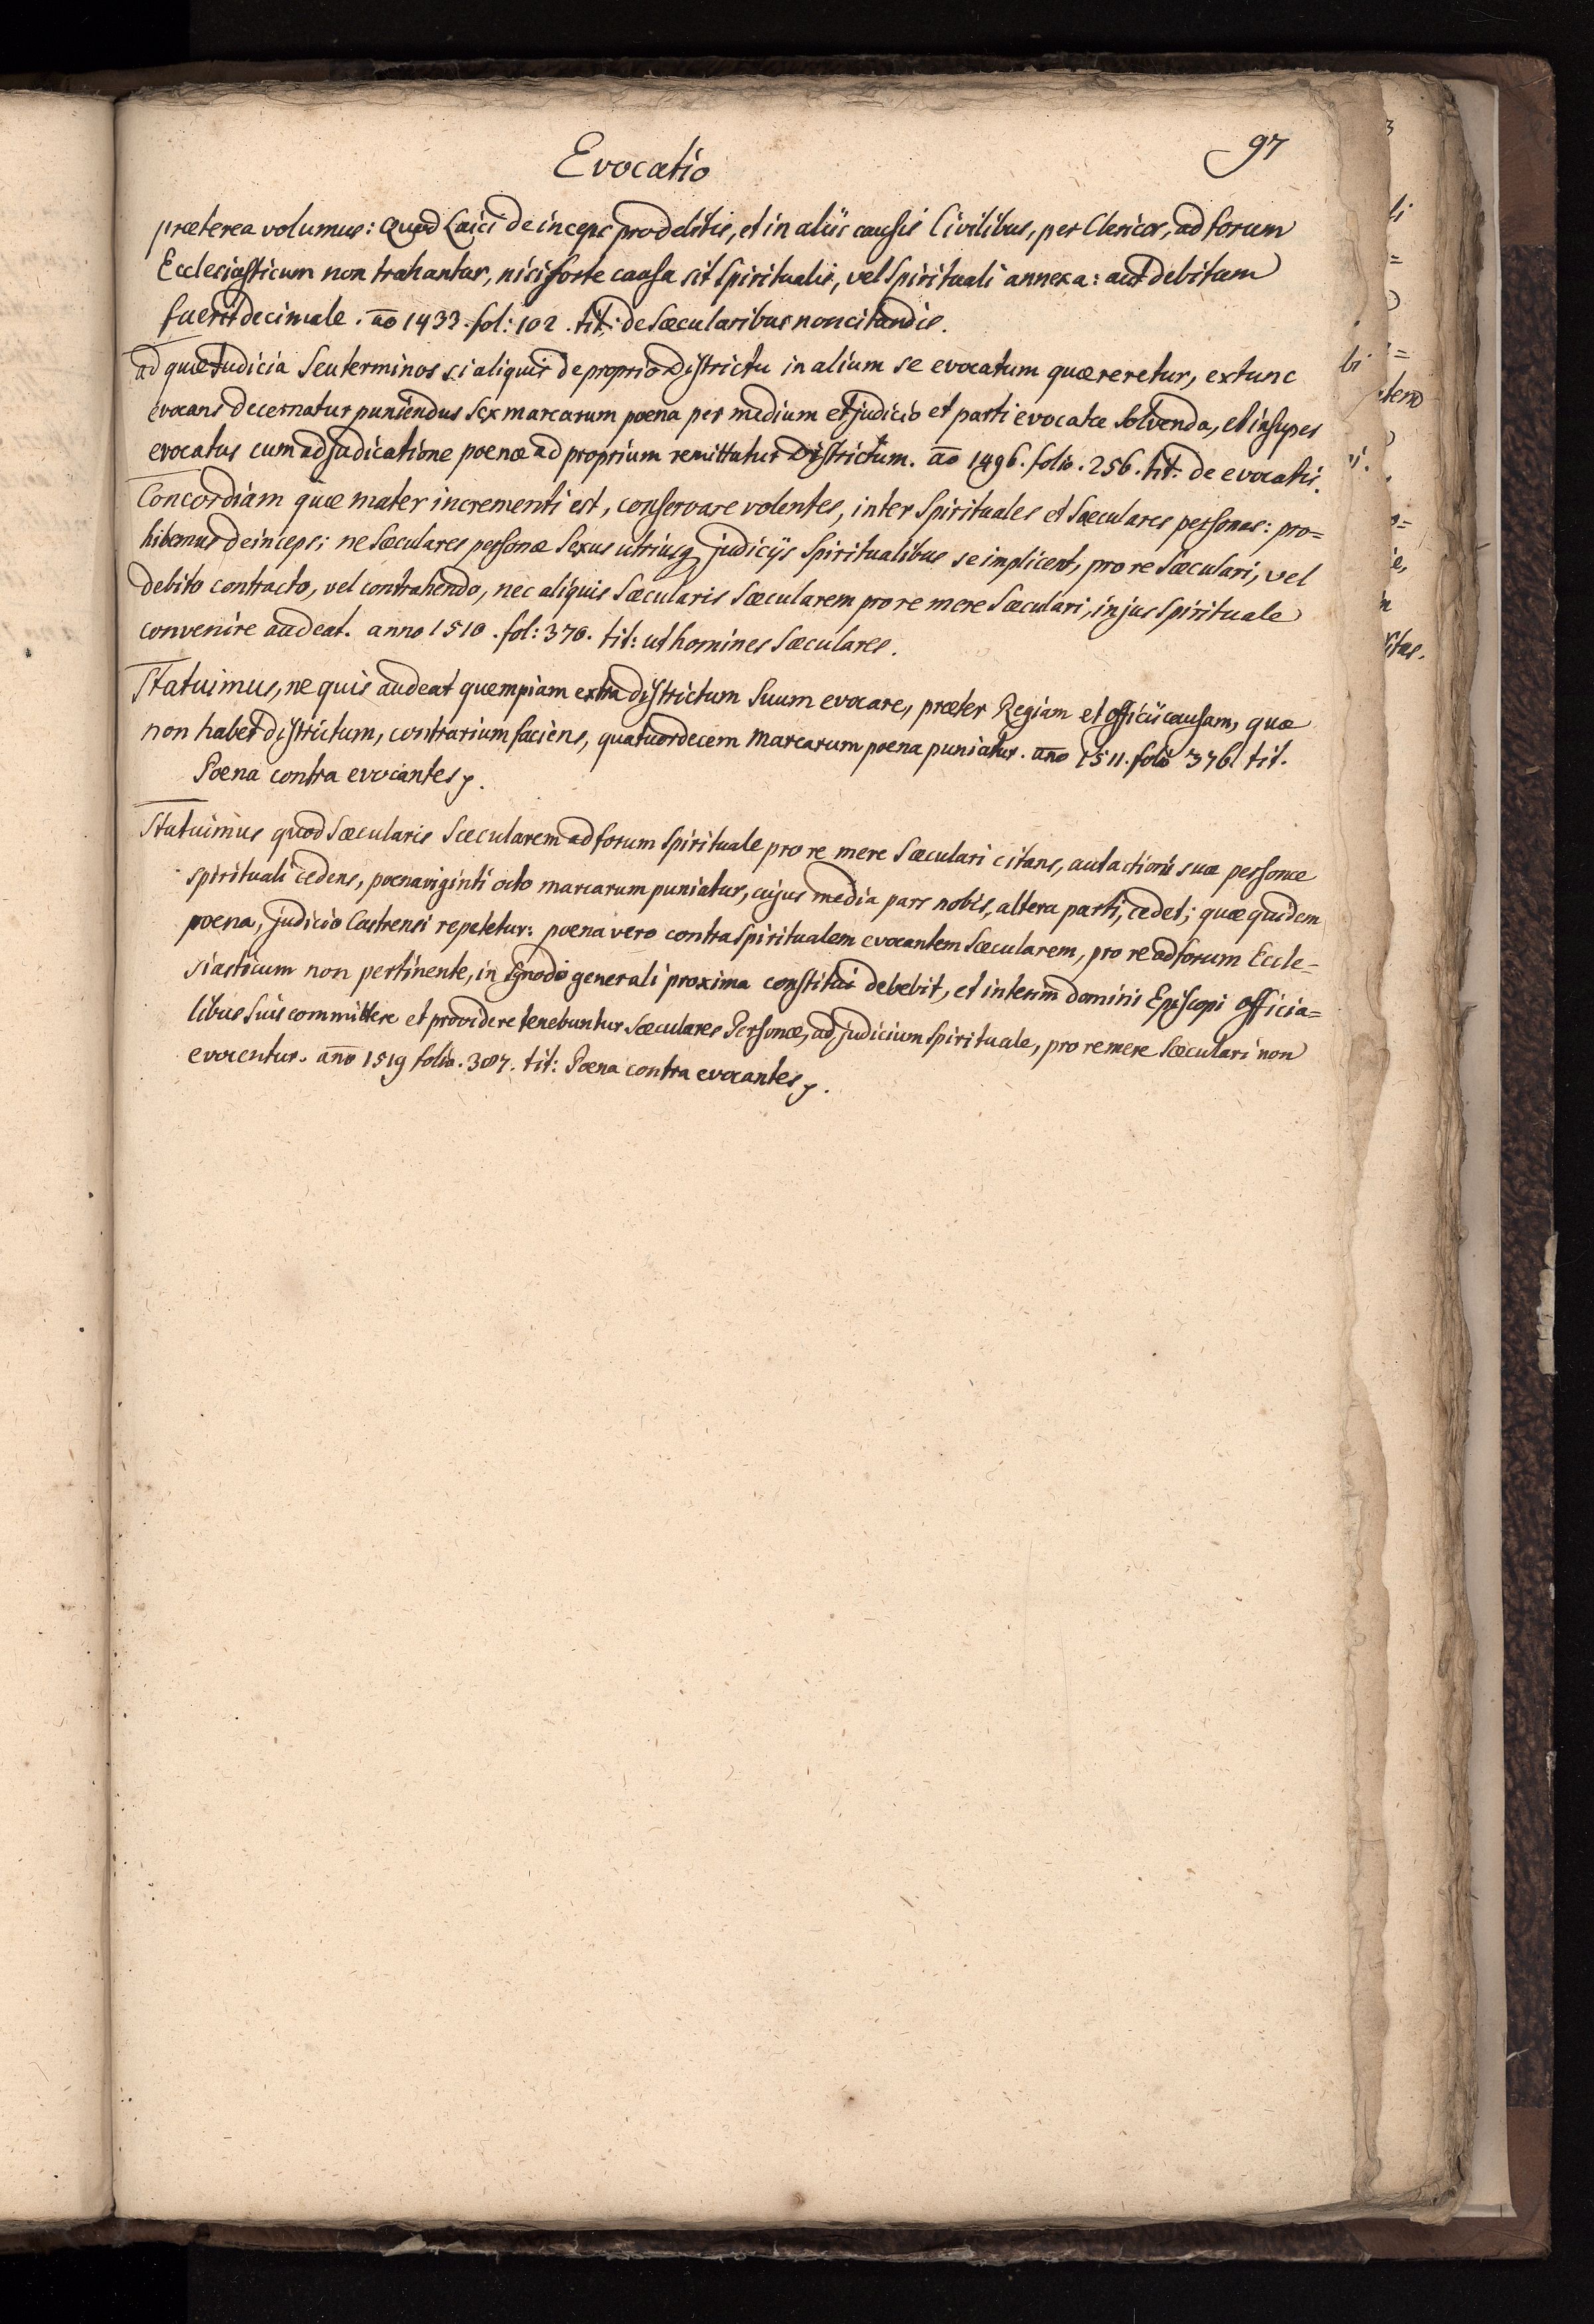 97
Evocatio
præterea volumus: Quod Laici deinceps pro debitis, et in aliis causis Civilibus, per Clericos, ad forum
Ecclesiasticum non trahantur, nisi forte causa sit Spiritualis, vel Spirituali annexa: aut debitum
fuerit decimale. ao 1433. fol: 102. tit: de Sæcularibus non citandis.
ad quæ Judicia Seu terminos si aliquis de proprio Districtu in alium se evocatum quæreretur, extunc
evocans decernatur puniendus Sex marcarum poena per medium et judicio et parti evocatæ Solvenda, et insuper
evocatus cum adjudicatione poenæ ad proprium remittatur Districtum. ao 1496. folio. 256. tit: de evocatis.
Concordiam quæ mater incrementi est, conservare volentes, inter Spirituales et Sæculares personas: pro=
hibemus deinceps; ne Sæculares personæ Sexus utriusq judicijs Spiritualibus se implicent, pro re Sæculari, vel
debito contracto, vel contrahendo, nec aliquis Sæcularis Sæcularem pro re mere Sæculari, in jus Spirituale
convenire audeat. anno 1510. fol: 370. tit: ut homines Sæculares.
Statuimus, ne quis audeat quempiam extra districtum Suum evocare, præter Regiam et officii causam, quæ
non habet districtum, contrarium faciens, quatuordecem Marcarum poena puniatur. ano 1511. folio 376. tit.
Poena contra evocantes.
Statuimus quod Sæcularis Sæcularem ad forum Spirituale pro re mere Sæculari citans, aut actioni suæ personæ
spirituali cedens, poena viginti octo marcarum puniatur, cujus media pars nobis, altera parti, cedet; quæ quidem
poena, judicio Castrensi repetetur: poena vero contra Spiritualem evocantem Sæcularem, pro re ad forum Eccle=
siasticum non pertinente, in Synodo generali proxima constitui debebit, et interim domini Episcopi officia=
libus Suis committere et providere tenebuntur Sæculares Personæ, ad judicium Spirituale, pro re mere Sæculari non
evocentur. ano 1519 folio. 387. tit: Poena contra evocantes.